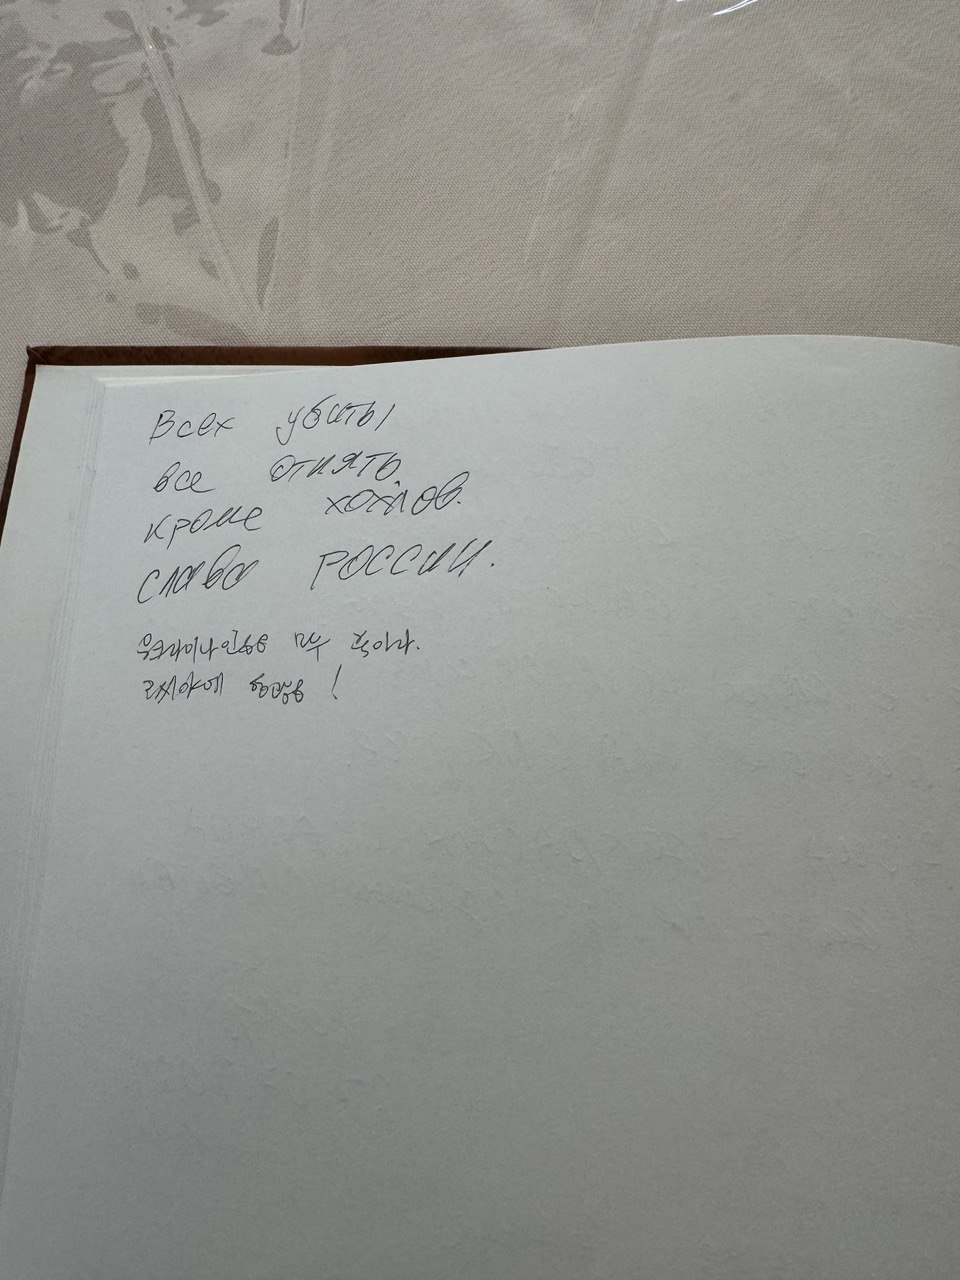 Всех убиты
все отнять
кроме хохлов.
слава России.
우크라이나인들은 모두 죽어라.
러시아에 영광을!